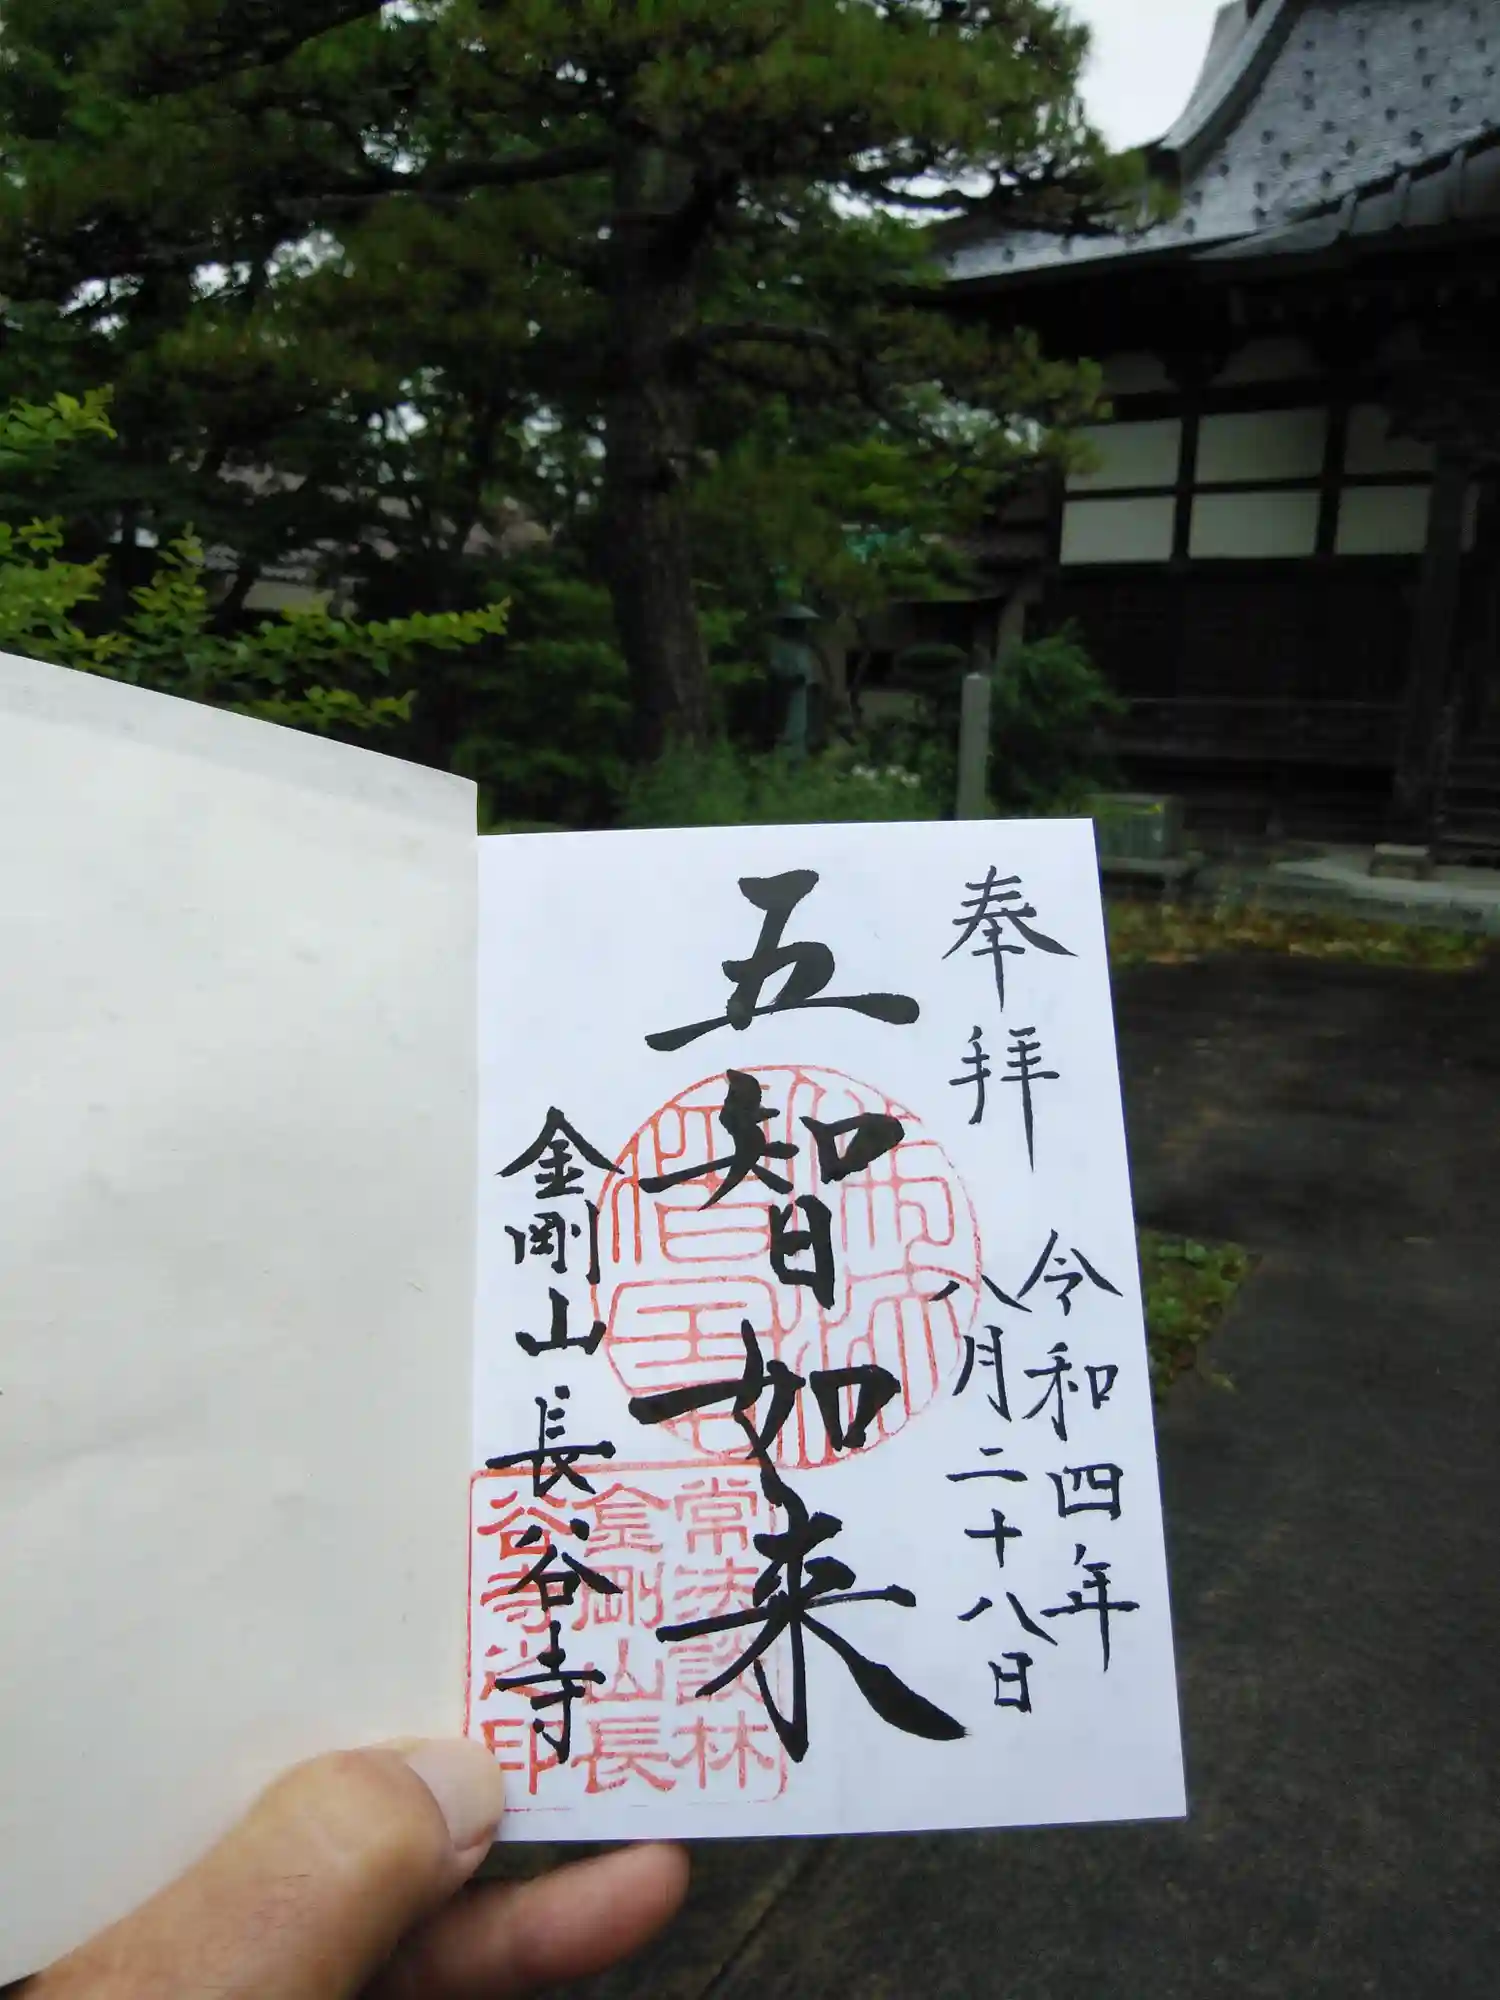 奉拝
令和四年
八月二十八日
五智如来
金剛山 長谷寺
常法談林
金剛山長
谷寺之印